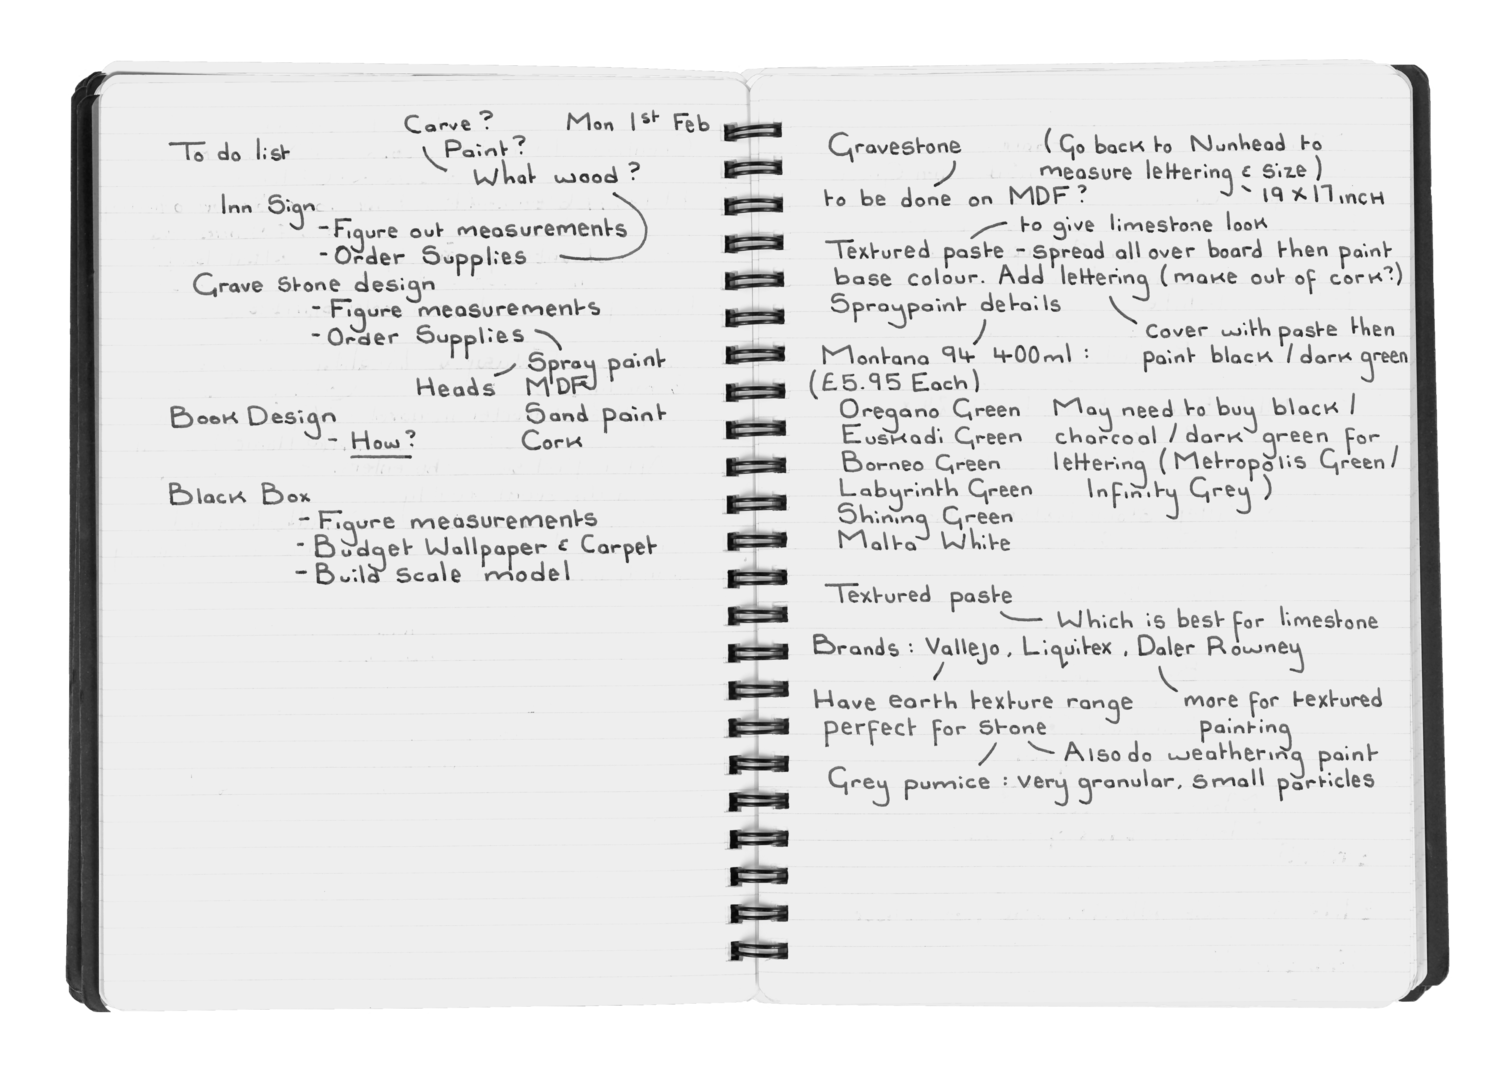 Carve? Mon 1st Feb
To do list Paint?
What wood?
Inn Sign
- Figure out measurements
- Order Supplies
Grave Stone design
- Figure measurements
- Order Supplies
Spray paint
Heads MDF
Book Design Sand paint
- How? Cork
Black Box
- Figure measurements
- Budget Wallpaper & Carpet
- Build scale model
Gravestone (Go back to Nunhead to
measure lettering & size)
to be done on MDF? 19 x 17 inch
to give limestone look
Textured paste - spread all over board then paint
base colour. Add lettering (make out of cork?)
Spraypaint details
cover with paste then
Montana 94 400ml : paint black / dark green
(£5.95 Each)
Oregano Green May need to buy black /
Euskadi Green charcoal / dark green for
Borneo Green lettering (Metropolis Green /
Labyrinth Green Infinity Grey)
Shining Green
Malta White
Textured paste
Which is best for limestone
Brands : Vallejo, Liquitex, Daler Rowney
Have earth texture range more for textured
perfect for stone painting
Also do weathering paint
Grey pumice : very granular, small particles